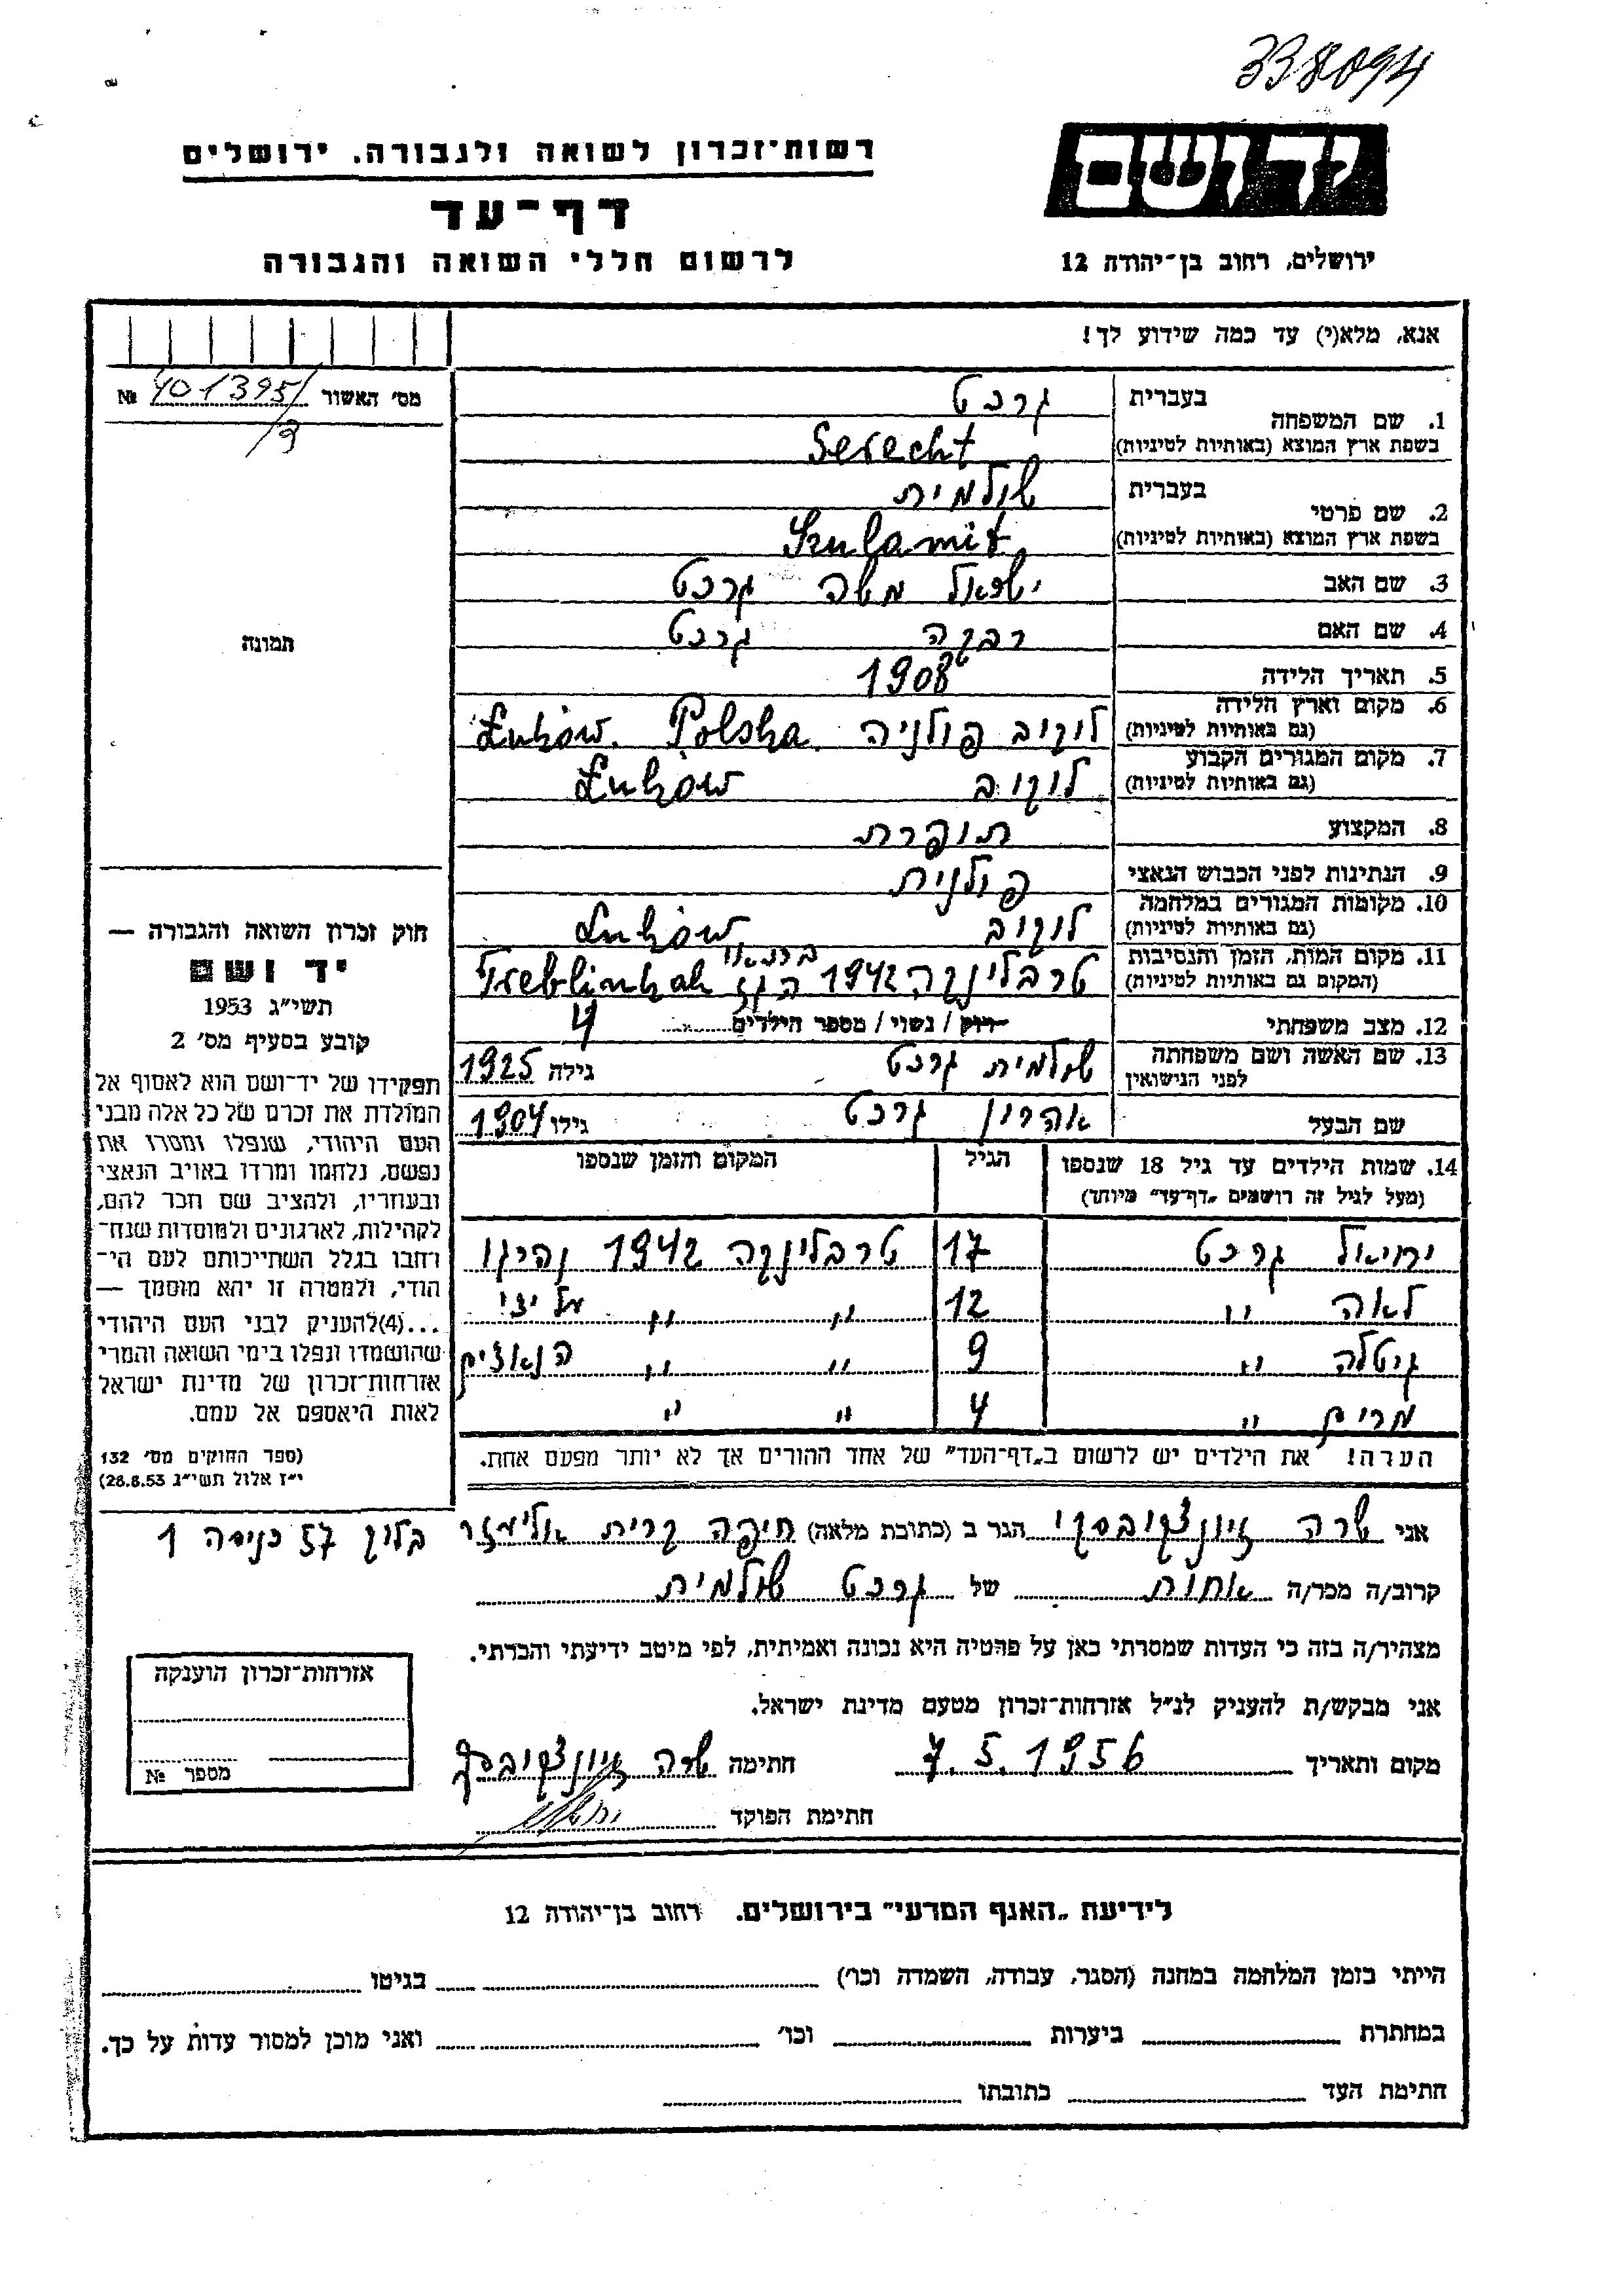 338094
רשות־זכרון לשואה ולגבורה. ירושלים
יד ושם
דף־עד
לרשום חללי השואה והגבורה
ירושלים, רחוב בן־יהודה 12
אנא, מלא(י) עד כמה שידוע לך!
מס׳ האשור 401395/ №
/9
תמונה
1. שם המשפחה בעברית גרכט
בשפת ארץ המוצא (באותיות לטיניות) Gerecht
2. שם פרטי בעברית שולמית
בשפת ארץ המוצא (באותיות לטיניות) Szulamit
3. שם האב ישראל משה גרכט
4. שם האם רבקה גרכט
5. תאריך הלידה 1908
6. מקום וארץ הלידה (גם באותיות לטיניות) לוקוב פולניה Łukow. Polska
7. מקום המגורים הקבוע (גם באותיות לטיניות) לוקוב Łukow
8. המקצוע תופרת
9. הנתינות לפני הכבוש הנאצי פולנית
10. מקומות המגורים במלחמה (גם באותיות לטיניות) לוקוב Łukow
11. מקום המות, הזמן והנסיבות (המקום גם באותיות לטיניות) טרבלינקה 1942 Treblinkah
12. מצב משפחתי רוק / נשוי / מספר הילדים 4
13. שם האשה ושם משפחתה לפני הנישואין שולמית גרכט גילה 1925
שם הבעל אהרון גרכט גילו 1904
14. שמות הילדים עד גיל 18 שנספו הגיל המקום והזמן שנספו
(מעל לגיל זה רושמים „דף־עד” מיוחד)
ירחיאל גרכט 17 טרבלינקה 1942 נהרגו
לאה ״ 12 ״ ״ על ידי
גיטלה ״ 9 ״ ״ הנאצים
מרים ״ 4 ״ ״
הערה! את הילדים יש לרשום ב„דף־העד” של אחד ההורים אך לא יותר מפעם אחת.
חוק זכרון השואה והגבורה —
יד ושם
תשי״ג 1953
קובע בסעיף מס׳ 2
תפקידו של יד־ושם הוא לאסוף אל
המולדת את זכרם של כל אלה מבני
העם היהודי, שנפלו ומסרו את
נפשם, נלחמו ומרדו באויב הנאצי
ובעוזריו, ולהציב שם וזכר להם,
לקהילות, לארגונים ולמוסדות שנח־
רחבו בגלל השתייכותם לעם הי־
הודי, ולמטרה זו יהא מוסמך —
...(4) להעניק לבני העם היהודי
שהושמדו ונפלו בימי השואה והמרי
אזרחות־זכרון של מדינת ישראל
לאות היאספם אל עמם.
(ספר החוקים מס׳ 132
י״ז אלול תשי״ג 28.8.53)
אני שרה הגר ב (כתובת מלאה) חיפה קרית אליעזר בלוק 57 כניסה 1
קרוב/ה מכר/ה אחות של גרכט שולמית
מצהיר/ה בזה כי העדות שמסרתי כאן על פרטיה היא נכונה ואמיתית, לפי מיטב ידיעתי והכרתי.
אני מבקש/ת להעניק לנ״ל אזרחות־זכרון מטעם מדינת ישראל.
מקום ותאריך 7.5.1956 חתימה שרה
חתימת הפוקד
אזרחות־זכרון הוענקה
מספר №
לידיעת „האגף המדעי” בירושלים. רחוב בן־יהודה 12
הייתי בזמן המלחמה במחנה (הסגר, עבודה, השמדה וכו׳) בגיטו
במחתרת ביערות וכו׳ ואני מוכן למסור עדות על כך.
חתימת העד כתובתו